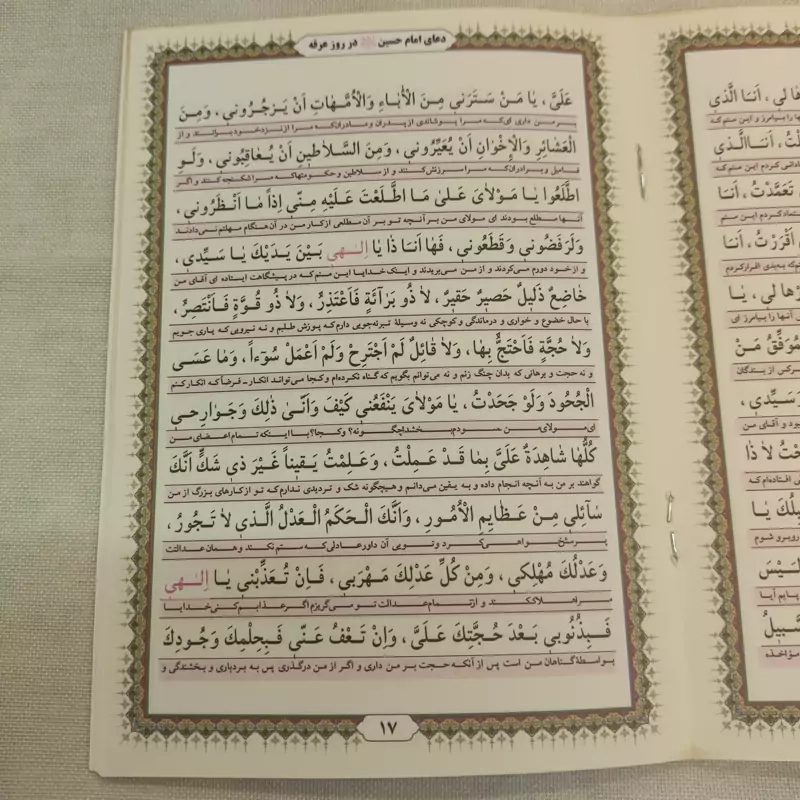 دعای امام حسین ﷺ در روز عرفه
عَلَیَّ ، یٰا مَنْ سَتَرَنی مِنَ الْاٰبٰاءِ وَالْاُمَّهٰاتِ اَنْ یَزجُرُونی ، وَمِنَ
بر من داری ای که مرا پوشاندی از پدران و مادران که مرا از نزد خود برانند و از
الْعَشٰائِرِ وَالْاِخْوٰانِ اَنْ یُعَیِّرُونی ، وَمِنَ السَّلاٰطینِ اَنْ یُعٰاقِبُونی ، وَلَوِ
فامیل و برادران که مرا سرزنش کنند و از سلاطین و حکومتها که مرا شکنجه کنند و اگر
اطَّلَعُوا یٰا مَوْلاٰیَ عَلیٰ مَا اطَّلَعْتَ عَلَیْهِ مِنّی اِذاً مٰا اَنْظَرُونی ،
آنها مطلع بودند ای مولای من بر آنچه تو بر آن مطلعی از کار من در آن هنگام مهلتم نمی‌دادند
وَلَرَفَضُونی وَقَطَعُونی ، فَهٰا اَنَا ذٰا یٰا اِلٰهی بَیْنَ یَدَیْكَ یٰا سَیِّدی ،
و از خود دورم می‌کردند و از من می‌بریدند و اینک خدایا این منم که در پیشگاهت ایستاده ای آقای من
خٰاضِعٌ ذَلیلٌ حَصیرٌ حَقیرٌ ، لاٰ ذُو بَرٰآئَةٍ فَاَعْتَذِرُ ، وَلاٰ ذُو قُوَّةٍ فَاَنْتَصِرُ ،
با حال خضوع و خواری و درماندگی و کوچکی نه وسیلهٔ تبرئه‌جویی دارم که پوزش طلبم و نه نیرویی که یاری جویم
وَلاٰ حُجَّةٍ فَاَحْتَجُّ بِهٰا ، وَلاٰ قٰائِلٌ لَمْ اَجْتَرِحْ وَلَمْ اَعْمَلْ سُوٓءاً ، وَمٰا عَسَی
و نه حجت و برهانی که بدان چنگ زنم و نه می‌توانم بگویم که گناه نکرده‌ام و کجا می‌تواند انکار - فرضاً که انکار کنم
الْجُحُودَ وَلَوْ جَحَدْتُ ، یٰا مَوْلاٰیَ یَنْفَعُنی کَیْفَ وَاَنّیٰ ذٰلِكَ وَجَوٰارِحی
ای مولای من سودم بخشد! چگونه؟ و کجا؟ با اینکه تمام اعضای من
کُلُّهٰا شٰاهِدَةٌ عَلَیَّ بِمٰا قَدْ عَمِلْتُ ، وَعَلِمْتُ یَقیناً غَیْرَ ذی شَكٍّ اَنَّكَ
گواهند بر من به آنچه انجام داده و به یقین می‌دانم و هیچگونه شک و تردیدی ندارم که تو از کارهای بزرگ از من
سٰآئِلی مِنْ عَظٰایِمِ الْاُمُورِ ، وَاَنَّكَ الْحَکَمُ الْعَدْلُ الَّذی لاٰ تَجُورُ ،
پرسش خواهی کرد و تویی آن داور عادلی که ستم نکند و همان عدالتت
وَعَدْلُكَ مُهْلِکی ، وَمِنْ کُلِّ عَدْلِكَ مَهْرَبی ، فَاِنْ تُعَذِّبْنی یٰا اِلٰهی
مرا هلاک کند و از تمام عدالت تو می‌گریزم اگر عذابم کنی خدایا
فَبِذُنُوبی بَعْدَ حُجَّتِكَ عَلَیَّ ، وَاِنْ تَعْفُ عَنّی فَبِحِلْمِكَ وَجُودِكَ
بواسطهٔ گناهان من است پس از آنکه حجت بر من داری و اگر از من درگذری پس به بردباری و بخشندگی و
۱۷
هٰا لی ، اَنَا الَّذی
اَنَا الَّذی
تَعَمَّدْتُ ، اَنَا
اَقْرَرْتُ ، اَنَا
هٰا لی ، یٰا
مَنْ
سَیِّدی ،
لاٰ ذٰا
یٰا